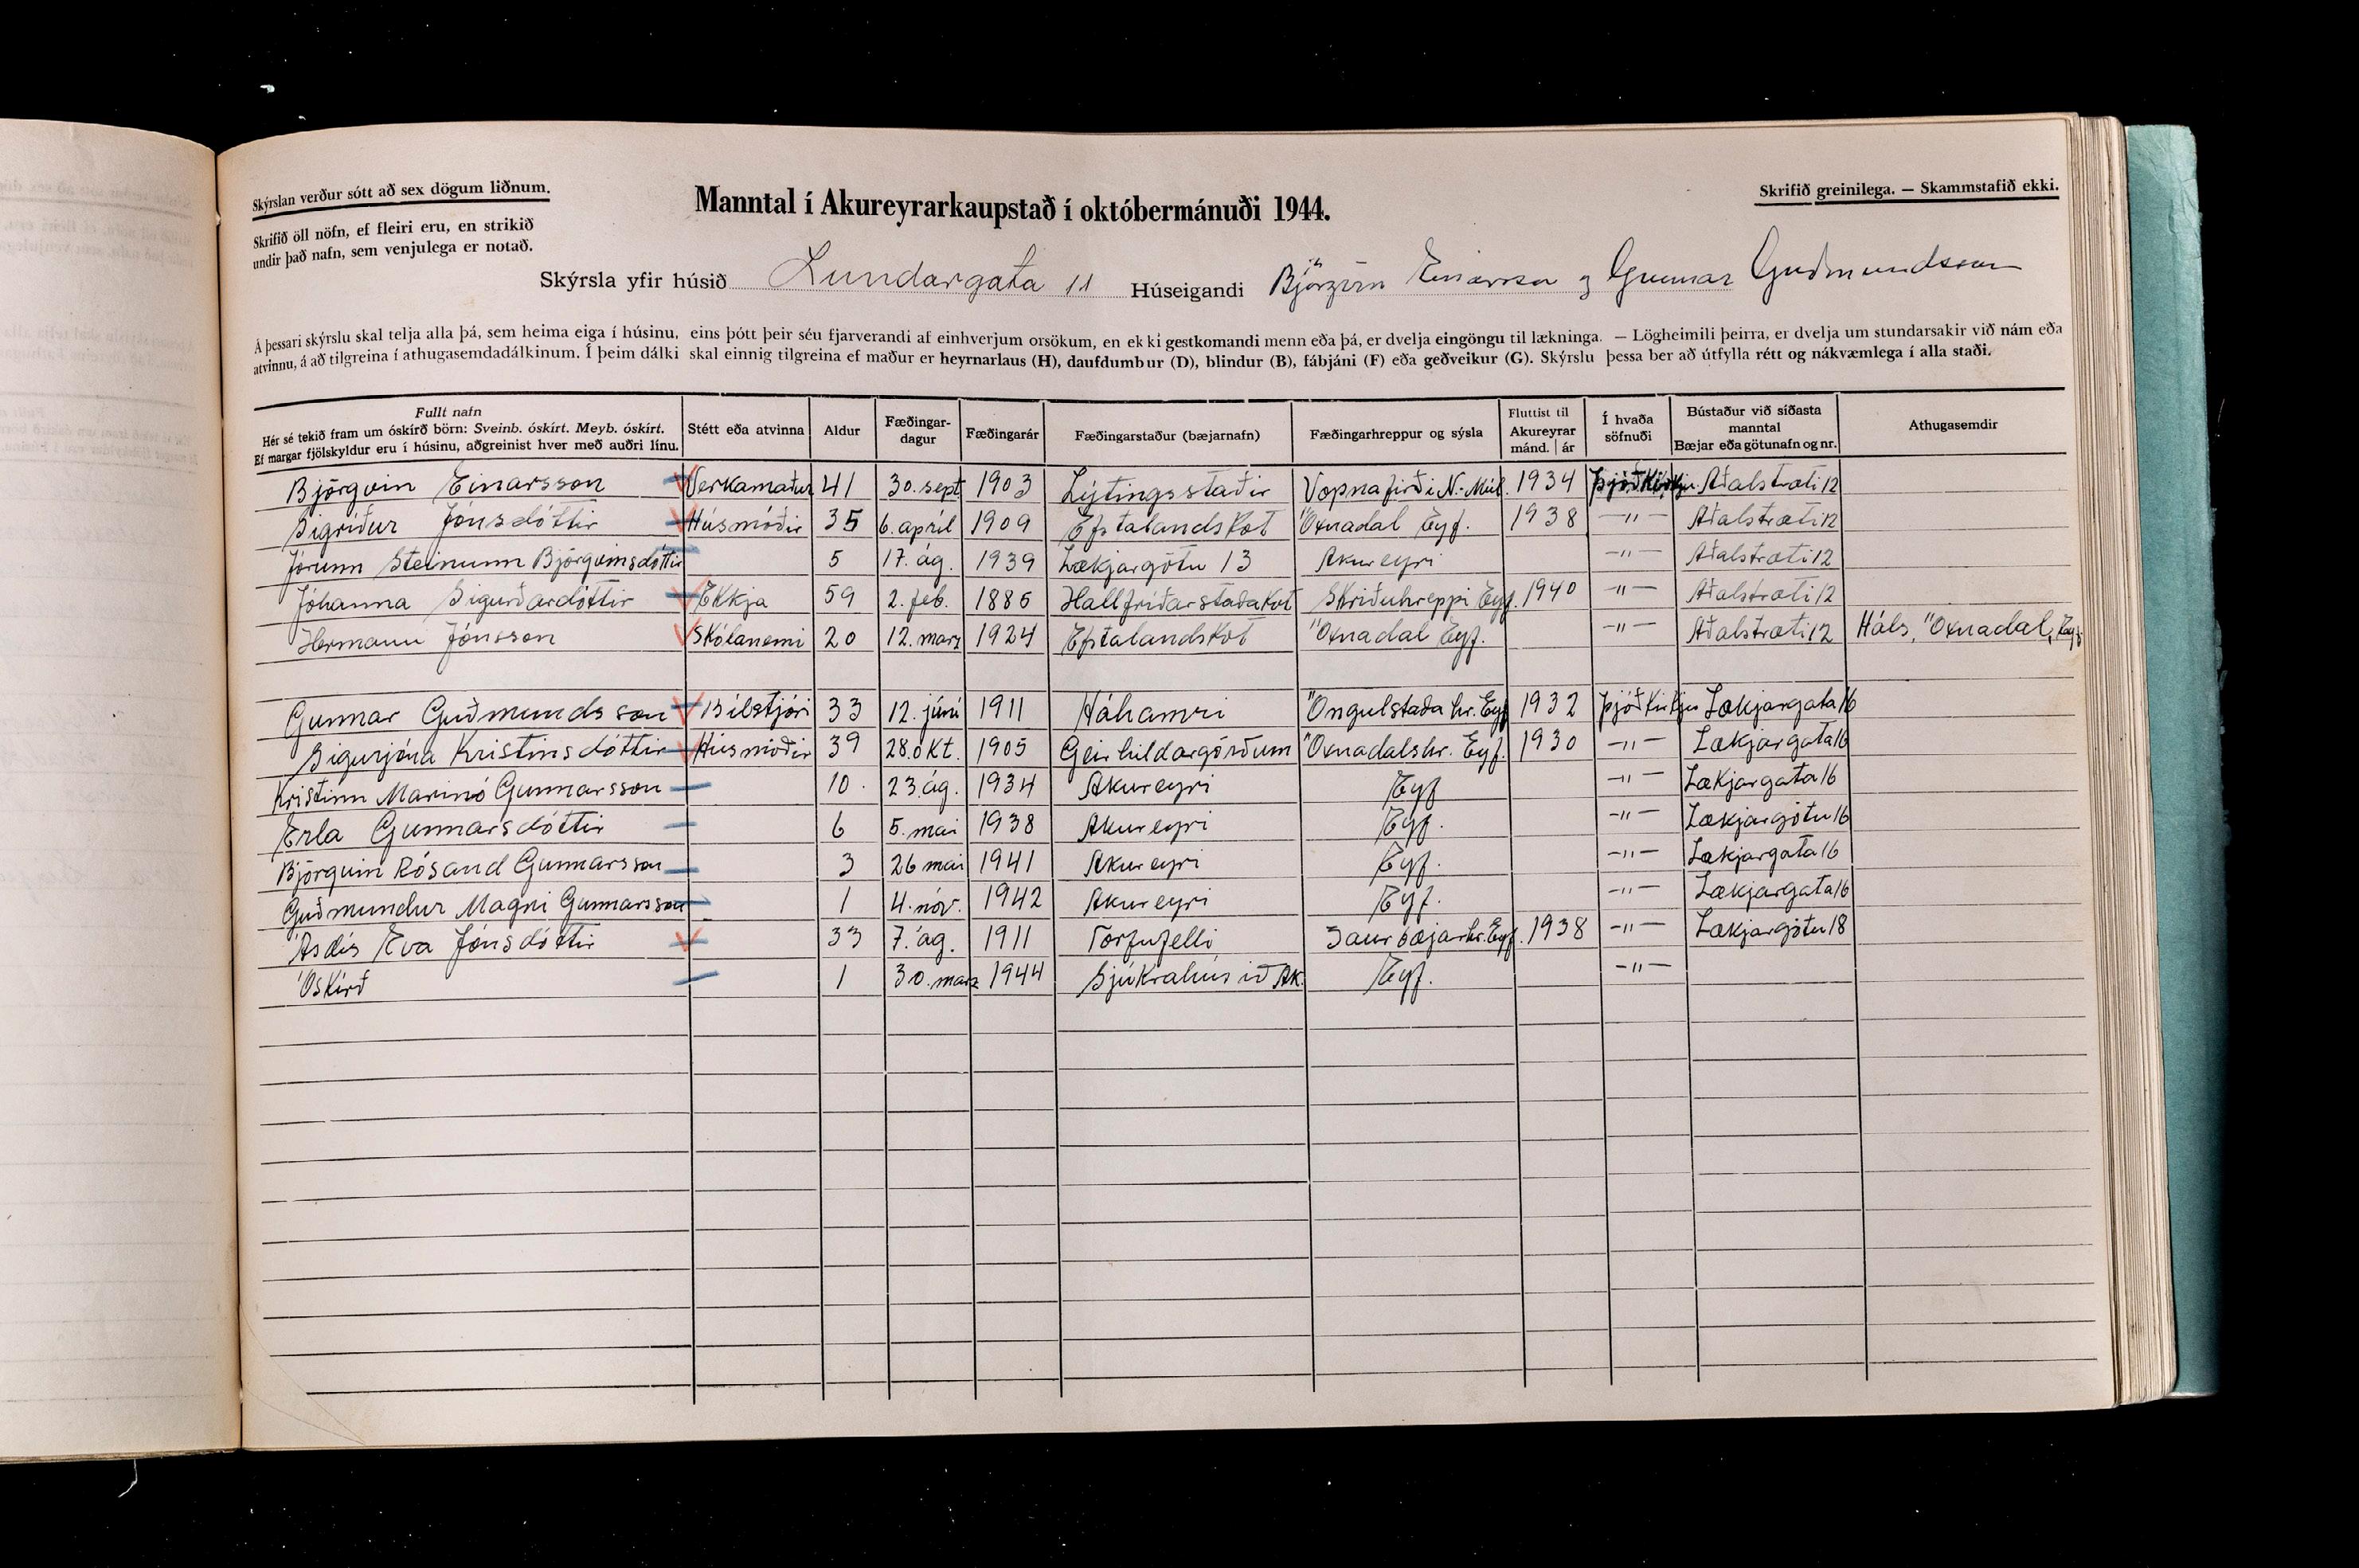 Skýrslan verður sótt að sex dögum liðnum.
Skrifið öll nöfn, ef fleiri eru, en strikið
undir það nafn, sem venjulega er notað.
Manntal í Akureyrarkaupstað í októbermánuði 1944.
Skrifið greinilega. — Skammstafið ekki.
Skýrsla yfir húsið Lundargata 11 Húseigandi Björgvin Einarsson og Gunnar Guðmundsson
Á þessari skýrslu skal telja alla þá, sem heima eiga í húsinu, eins þótt þeir séu fjarverandi af einhverjum orsökum, en ekki gestkomandi menn eða þá, er dvelja eingöngu til lækninga. — Lögheimili þeirra, er dvelja um stundarsakir við nám eða
atvinnu, á að tilgreina í athugasemdadálkinum. Í þeim dálki skal einnig tilgreina ef maður er heyrnarlaus (H), daufdumbur (D), blindur (B), fábjáni (F) eða geðveikur (G). Skýrslu þessa ber að útfylla rétt og nákvæmlega í alla staði.
Fullt nafn
Hér sé tekið fram um óskírð börn: Sveinb. óskírt. Meyb. óskírt.
Ef margar fjölskyldur eru í húsinu, aðgreinist hver með auðri línu.
Stétt eða atvinna
Aldur
Fæðingar-
dagur
Fæðingarár
Fæðingarstaður (bæjarnafn)
Fæðingarhreppur og sýsla
Fluttist til
Akureyrar
mánd. | ár
Í hvaða
söfnuði
Bústaður við síðasta
manntal
Bæjar eða götunafn og nr.
Athugasemdir
Björgvin Einarsson Verkamaður 41 30. sept 1903 Lýtingsstaðir Vopnafirði N.-Múl. 1934 Þjóðkirkju Aðalstræti 12
Sigríður Jónsdóttir Húsmóðir 35 6. apríl 1909 Efstalandskot Öxnadal Eyf. 1938 —"— Aðalstræti 12
Jórunn Steinunn Björgvinsdóttir 5 17. ág. 1939 Lækjargötu 13 Akureyri —"— Aðalstræti 12
Jóhanna Sigurðardóttir Ekkja 59 2. feb. 1885 Hallfríðarstaðakot Skriðuhreppi Eyf. 1940 —"— Aðalstræti 12
Hermann Jónsson Skólanemi 20 12. marz 1924 Efstalandskot Öxnadal Eyf. —"— Aðalstræti 12 Háls, Öxnadal, Eyf.
Gunnar Guðmundsson Bílstjóri 33 12. júní 1911 Háhamri Öngulstaða hr. Eyf 1932 Þjóðkirkju Lækjargata 16
Sigurjóna Kristinsdóttir Húsmóðir 39 28. okt. 1905 Geirhildargörðum Öxnadalshr. Eyf. 1930 —"— Lækjargata 16
Kristinn Marinó Gunnarsson 10 23. ág. 1934 Akureyri Eyf —"— Lækjargata 16
Erla Gunnarsdóttir 6 5. mai 1938 Akureyri Eyf. —"— Lækjargötu 16
Björgvin Rósand Gunnarsson 3 26 mai 1941 Akureyri Eyf. —"— Lækjargata 16
Guðmundur Magni Gunnarsson 1 4. nóv. 1942 Akureyri Eyf. —"— Lækjargata 16
Ásdís Eva Jónsdóttir 33 7. ág. 1911 Torfufelli Saurbæjarhr. Eyf. 1938 —"— Lækjargötu 18
Óskírð 1 30. marz 1944 Sjúkrahúsið Ak. Eyf. —"—